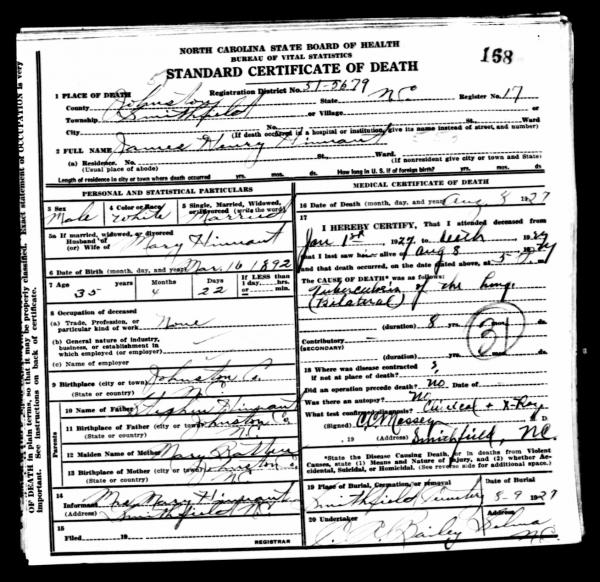 NORTH CAROLINA STATE BOARD OF HEALTH
BUREAU OF VITAL STATISTICS
168
STANDARD CERTIFICATE OF DEATH
1 PLACE OF DEATH
Registration District No. 51-5679
County Johnston State NC Register No. 17
Township Smithfield or Village or
City No. St., Ward
(If death occurred in a hospital or institution, give its name instead of street, and number)
2 FULL NAME James Henry Hinnant
(a) Residence. No. St., Ward.
(Usual place of abode) (If nonresident give city or town and State)
Length of residence in city or town where death occurred yrs. mos. ds. How long in U. S. if of foreign birth? yrs. mos. ds.
PERSONAL AND STATISTICAL PARTICULARS
3 Sex 4 Color or Race 5 Single, Married, Widowed,
or Divorced (write the word)
Male White Married
5a If married, widowed, or divorced
Husband of
(or) Wife of Mary Hinnant
6 Date of Birth (month, day, and year) Mar. 16 1892
7 Age Years Months Days If LESS than
1 day, hrs.
or min.
35 4 22
8 Occupation of deceased
(a) Trade, Profession, or
particular kind of work None
(b) General nature of industry,
business, or establishment in
which employed (or employer)
(c) Name of employer
9 Birthplace (city or town) Johnston Co.
(State or country) NC
10 Name of Father Stephen Hinnant
11 Birthplace of Father (city or town) Johnston Co
(State or country) NC
12 Maiden Name of Mother Mary
13 Birthplace of Mother (city or town) Johnston Co
(State or country) NC
Parents
14
Informant Mrs Mary Hinnant
(Address) Smithfield NC
15
Filed , 19
REGISTRAR
MEDICAL CERTIFICATE OF DEATH
16 Date of Death (month, day, and year) Aug 8 1927
17
I HEREBY CERTIFY, That I attended deceased from
Jan 1st, 1927, to death, 1927
that I last saw him alive on Aug 8, 1927
and that death occurred, on the date stated above, at 5
The CAUSE OF DEATH* was as follows:
Tuberculosis of the lungs
(Bilateral)
(duration) 8 yrs. mos. ds.
31
Contributory
(SECONDARY)
(duration) yrs. mos. ds.
18 Where was disease contracted
if not at place of death? ?
Did an operation precede death? No. Date of
Was there an autopsy? No
What test confirmed diagnosis? Clinical + X-Ray
(Signed) C. Massey D.
, 19 (Address) Smithfield, NC.
*State the Disease Causing Death, or in deaths from Violent
Causes, state (1) Means and Nature of Injury, and (2) whether Ac-
cidental, Suicidal, or Homicidal. (See reverse side for additional space.)
19 Place of Burial, Cremation, or removal Date of Burial
Smithfield Cemetery 8-9 1927
20 Undertaker Address
Bailey Selma
NC
OF DEATH in plain terms, so that it may be properly classified. Exact statement of OCCUPATION is very
important. See instructions on back of certificate.